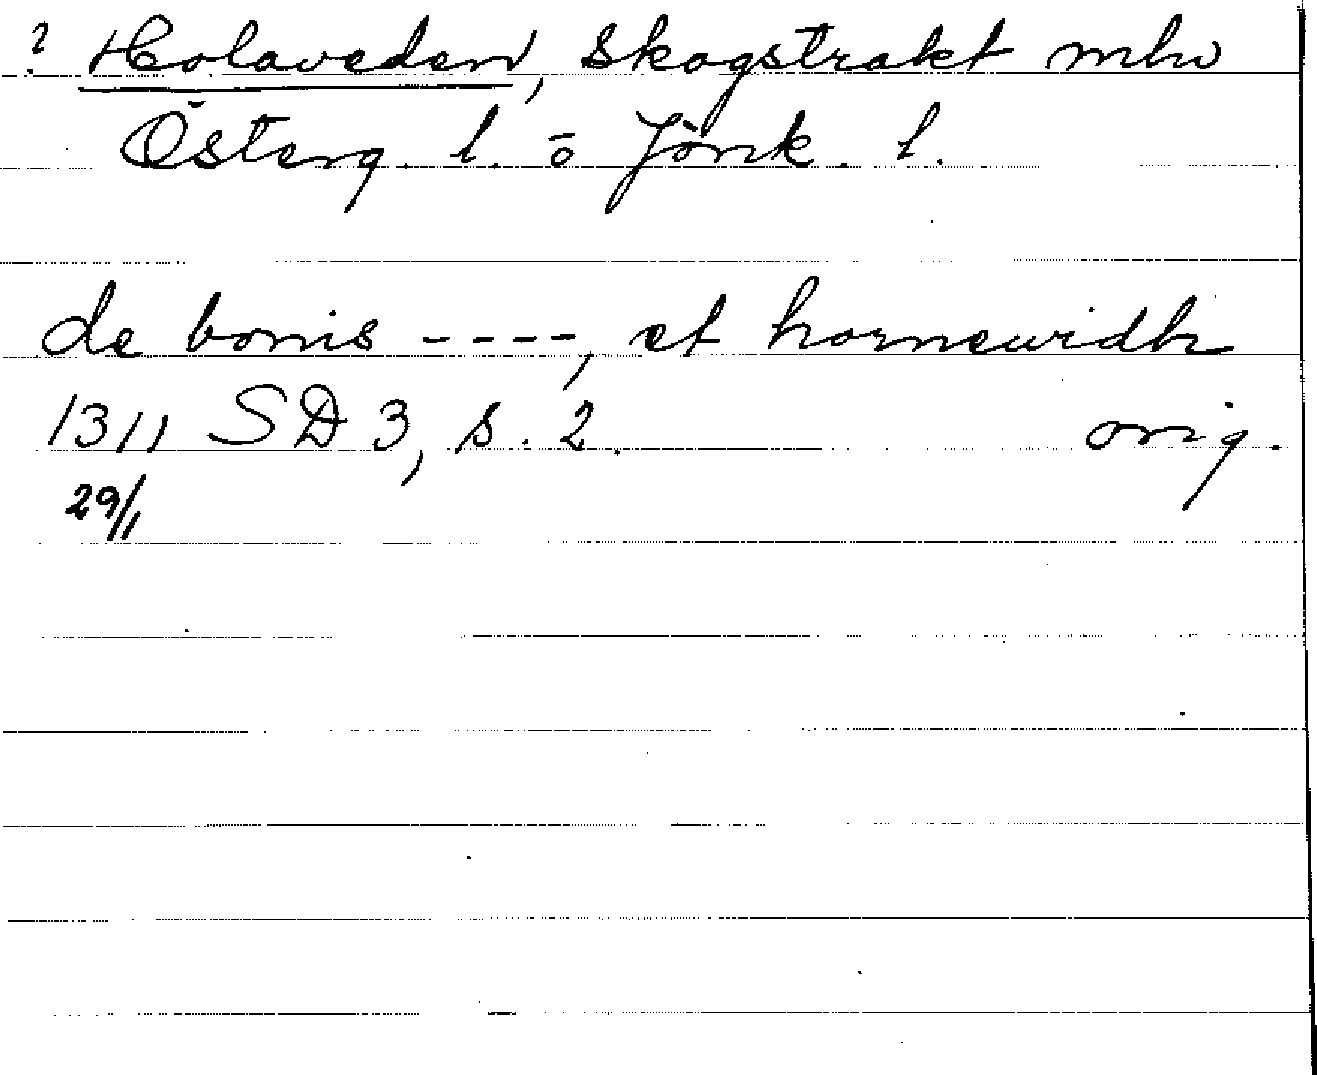 ? Holaveden, skogstrakt mlw
Österg. l. o Jönk. l.
de bonis ----, et hornewidh
1311 SD 3, s. 2. orig.
29/1